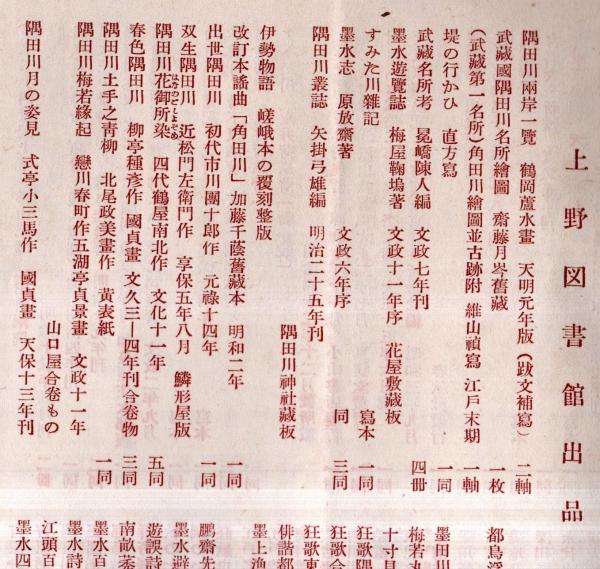 上野図書館出品
隅田川兩岸一覽　鶴岡蘆水畫　天明元年版（跋文補寫）　二軸
武藏國隅田川名所繪圖　齋藤月岑舊藏　一枚
（武藏第一名所）角田川繪圖並古跡附　維山禎寫　江戶末期　一軸
堤の行かひ　直方寫　一同
武藏名所考　冕嶠陳人編　文政七年刊　四冊
墨水遊覽誌　梅屋鞠塢著　文政十一年序　花屋敷藏板
すみた川雜記　寫本　一同
墨水志　原放齋著　文政六年序　同　三同
隅田川叢誌　矢掛弓雄編　明治二十五年刊
隅田川神社藏板
伊勢物語　嵯峨本の覆刻整版
改訂本謠曲「角田川」加藤千蔭舊藏本　明和二年　一同
出世隅田川　初代市川團十郎作　元祿十四年　一同
双生隅田川　近松門左衛門作　享保五年八月　鱗形屋版
隅田川花御所染　四代鶴屋南北作　文化十一年　五同
春色隅田川　柳亭種彥作　國貞畫　文久三—四年刊合卷物　三同
隅田川土手之青柳　北尾政美畫作　黃表紙　一同
隅田川梅若緣起　戀川春町作五湖亭貞景畫　文政十一年
山口屋合卷もの　一同
隅田川月の姿見　式亭小三馬作　國貞畫　天保十三年刊
都鳥
墨田川
梅若
十寸
狂歌隅
狂歌合
狂歌東
俳諧都
墨上漁
鵬齋先
墨水避
遊誤詩
南畝莠
墨水百
墨水詩
江頭百
墨水四